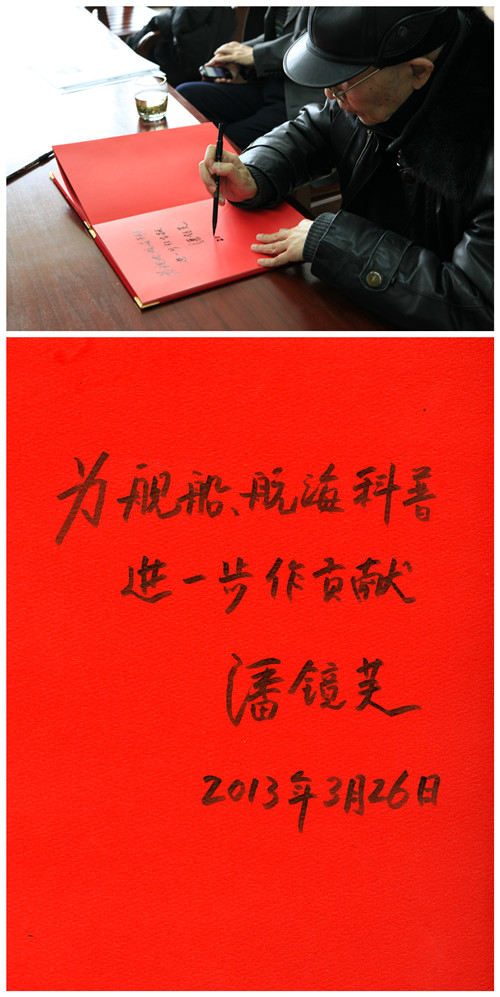 为舰船、航海科普
进一步作贡献
潘镜芙
2013年3月26日